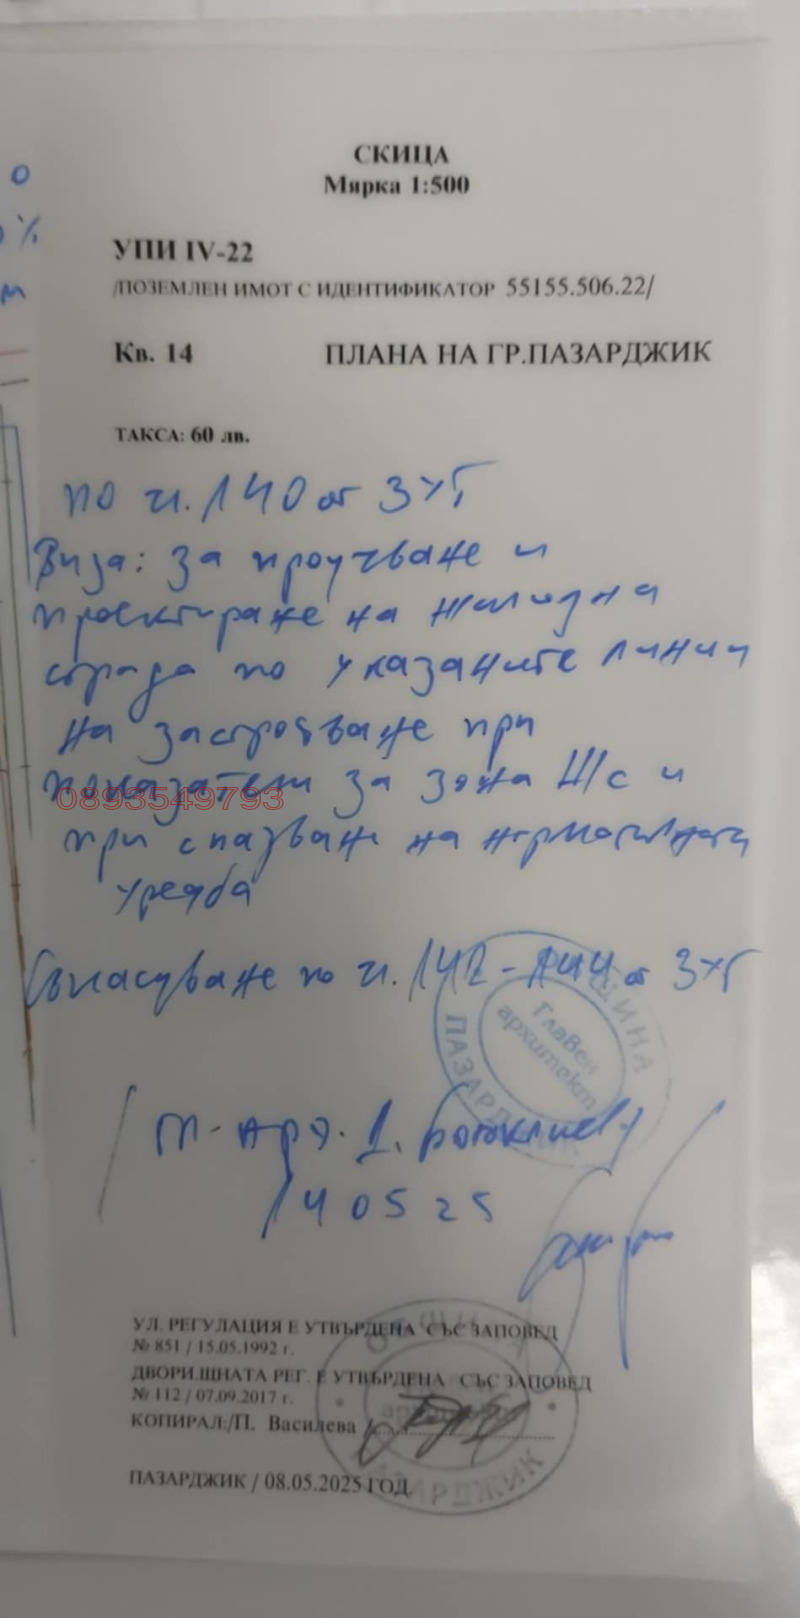 о
%
м
СКИЦА
Мярка 1:500
УПИ IV-22
/ПОЗЕМЛЕН ИМОТ С ИДЕНТИФИКАТОР 55155.506.22/
Кв. 14 ПЛАНА НА ГР.ПАЗАРДЖИК
ТАКСА: 60 лв.
по чл. 140 от ЗУТ
Виза: за проучване и
проектиране на жилищна
сграда по указаните линии
на застрояване при
показатели за зона Жс и
0893549793
при спазване на нормативната
уредба
Съгласуване по чл. 142-144 от ЗУТ
ОБЩИНА ПАЗАРДЖИК
Главен
архитект
арх.
140525
УЛ. РЕГУЛАЦИЯ Е УТВЪРДЕНА СЪС ЗАПОВЕД
№ 851 / 15.05.1992 г.
ДВОРИЩНАТА РЕГ. Е УТВЪРДЕНА СЪС ЗАПОВЕД
№ 112 / 07.09.2017 г.
КОПИРАЛ:/П. Василева /
ПАЗАРДЖИК / 08.05.2025 ГОД.
ОБЩИНА ПАЗАРДЖИК